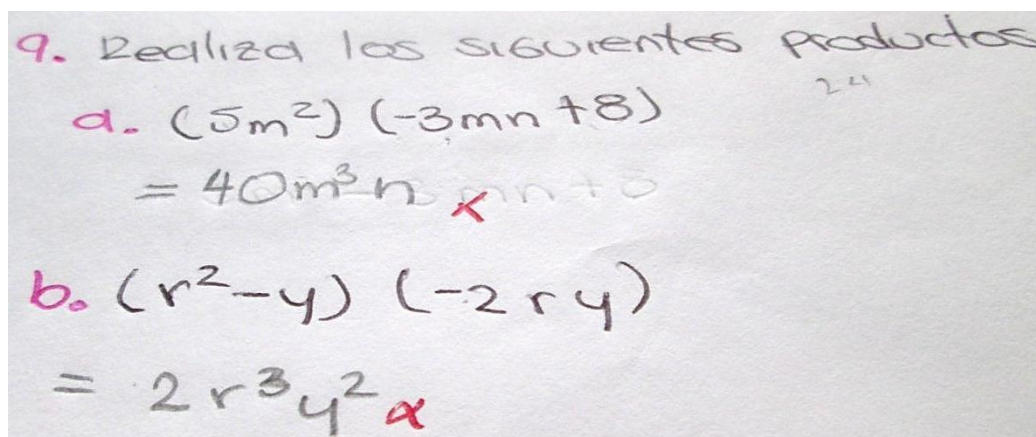 9. Realiza los siguientes productos
a. (5m²) (-3mn +8)
= 40m³n x
b. (r²-y) (-2ry)
= 2r³y² x